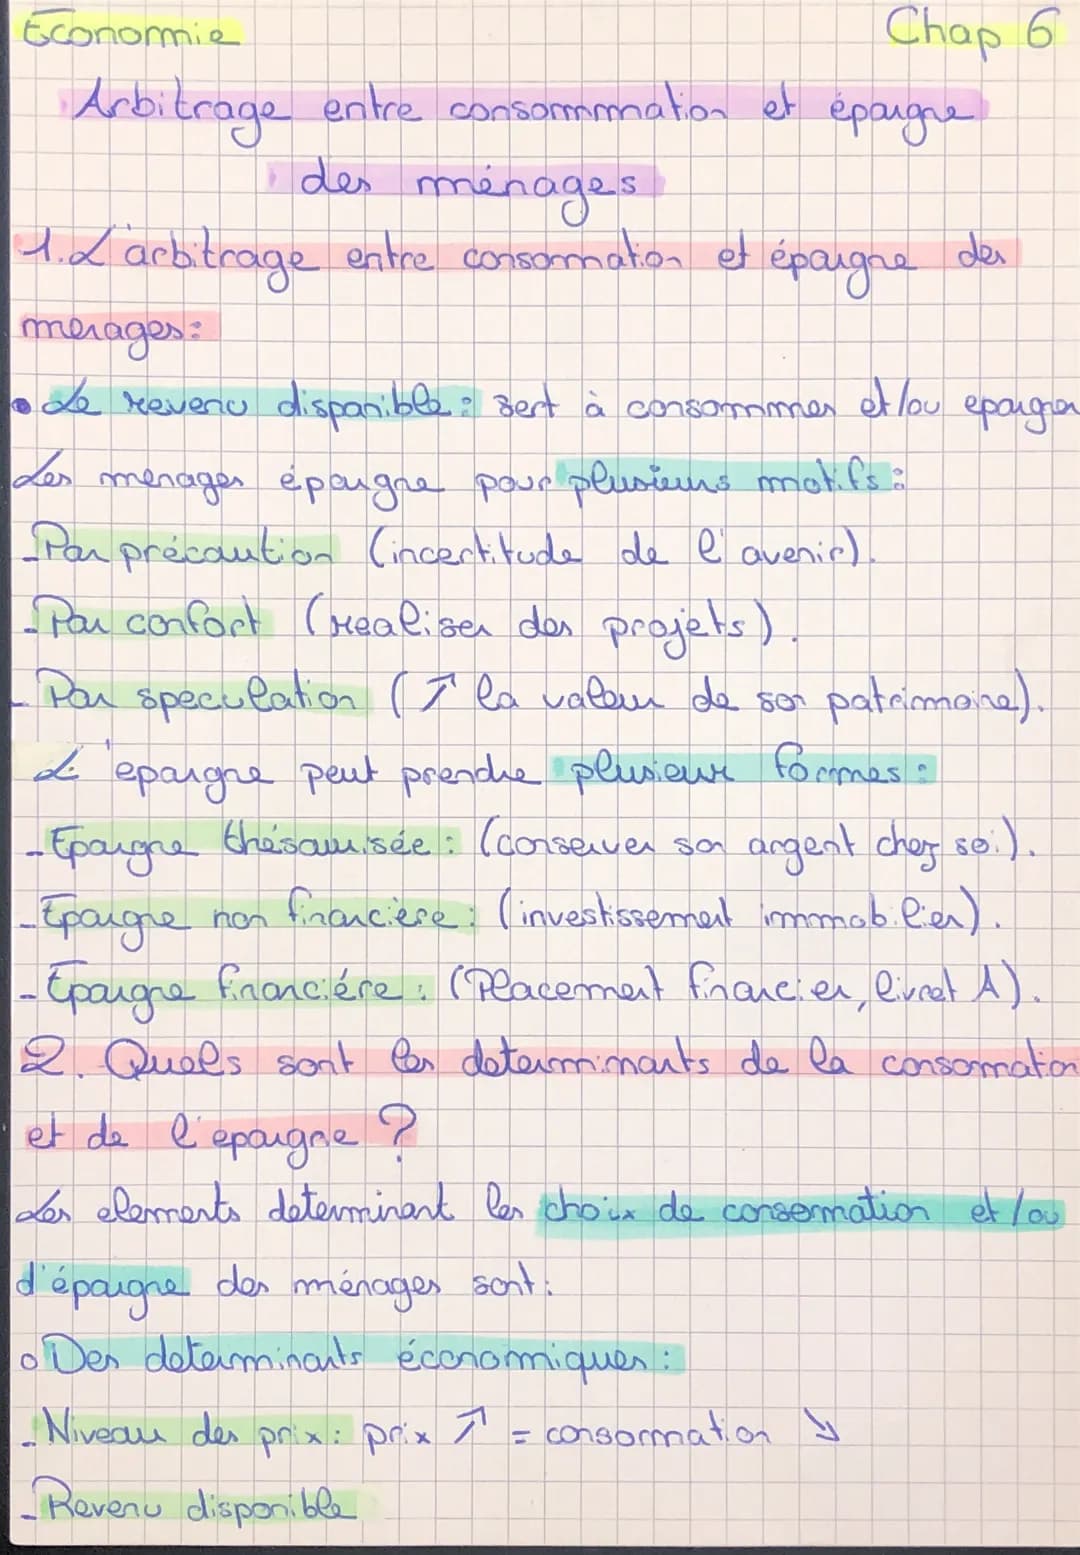 Economie Chap 6
Arbitrage entre consommation et épargne
des ménages
1. L'arbitrage entre consommation et épargne des
menages:
• Le revenu disponible: sert à consommer et/ou epargner
Les menages épargne pour plusieurs motifs:
- Par précaution (incertitude de l'avenir).
- Par confort (realiser des projets).
- Par speculation (↗ la valeur de son patrimoine).
L'epargne peut prendre plusieur formes:
- Epargne thésaurisée: (conserver son argent chez soi).
- Epargne non financière: (investissement immobilier).
- Epargne financiére: (Placement financier, livret A).
2. Quels sont les determinants de la consommation
et de l'epargne ?
Les elements determinant les choix de consommation et/ou
d'épargne des ménages sont:
o Des determinants économiques:
- Niveau des prix: prix ↗ = consommation ↘
- Revenu disponible